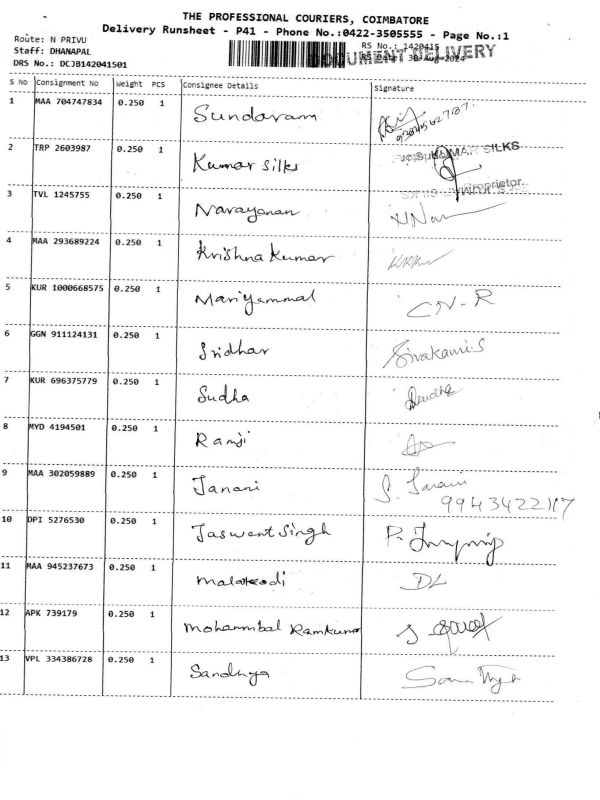 THE PROFESSIONAL COURIERS, COIMBATORE
Delivery Runsheet - P41 - Phone No.:0422-3505555 - Page No.:1
Route: N PRIVU
RS No.: 1420415
DOCUMENT DELIVERY
Staff: DHANAPAL
RS Date: 30-Aug-2024
DRS No.: DCJB142041501
S No Consignment No Weight PCS Consignee Details Signature
1 MAA 704747834 0.250 1 Sundaram
2 TRP 2603987 0.250 1 Kumar silks
KUMAR SILKS
Proprietor.
3 TVL 1245755 0.250 1 Narayanan
4 MAA 293689224 0.250 1 Krishna Kumar
5 KUR 1000668575 0.250 1 Mariyammal CN-R
6 GGN 911124131 0.250 1 Sridhar Sivakami.S
7 KUR 696375779 0.250 1 Sudha Sudha
8 MYD 4194501 0.250 1 Ramji
9 MAA 302059889 0.250 1 Janani
10 DPI 5276530 0.250 1 Jaswent Singh
11 MAA 945237673 0.250 1 DL
12 APK 739179 0.250 1 Ramkumar
13 VPL 334386728 0.250 1 Sandhya